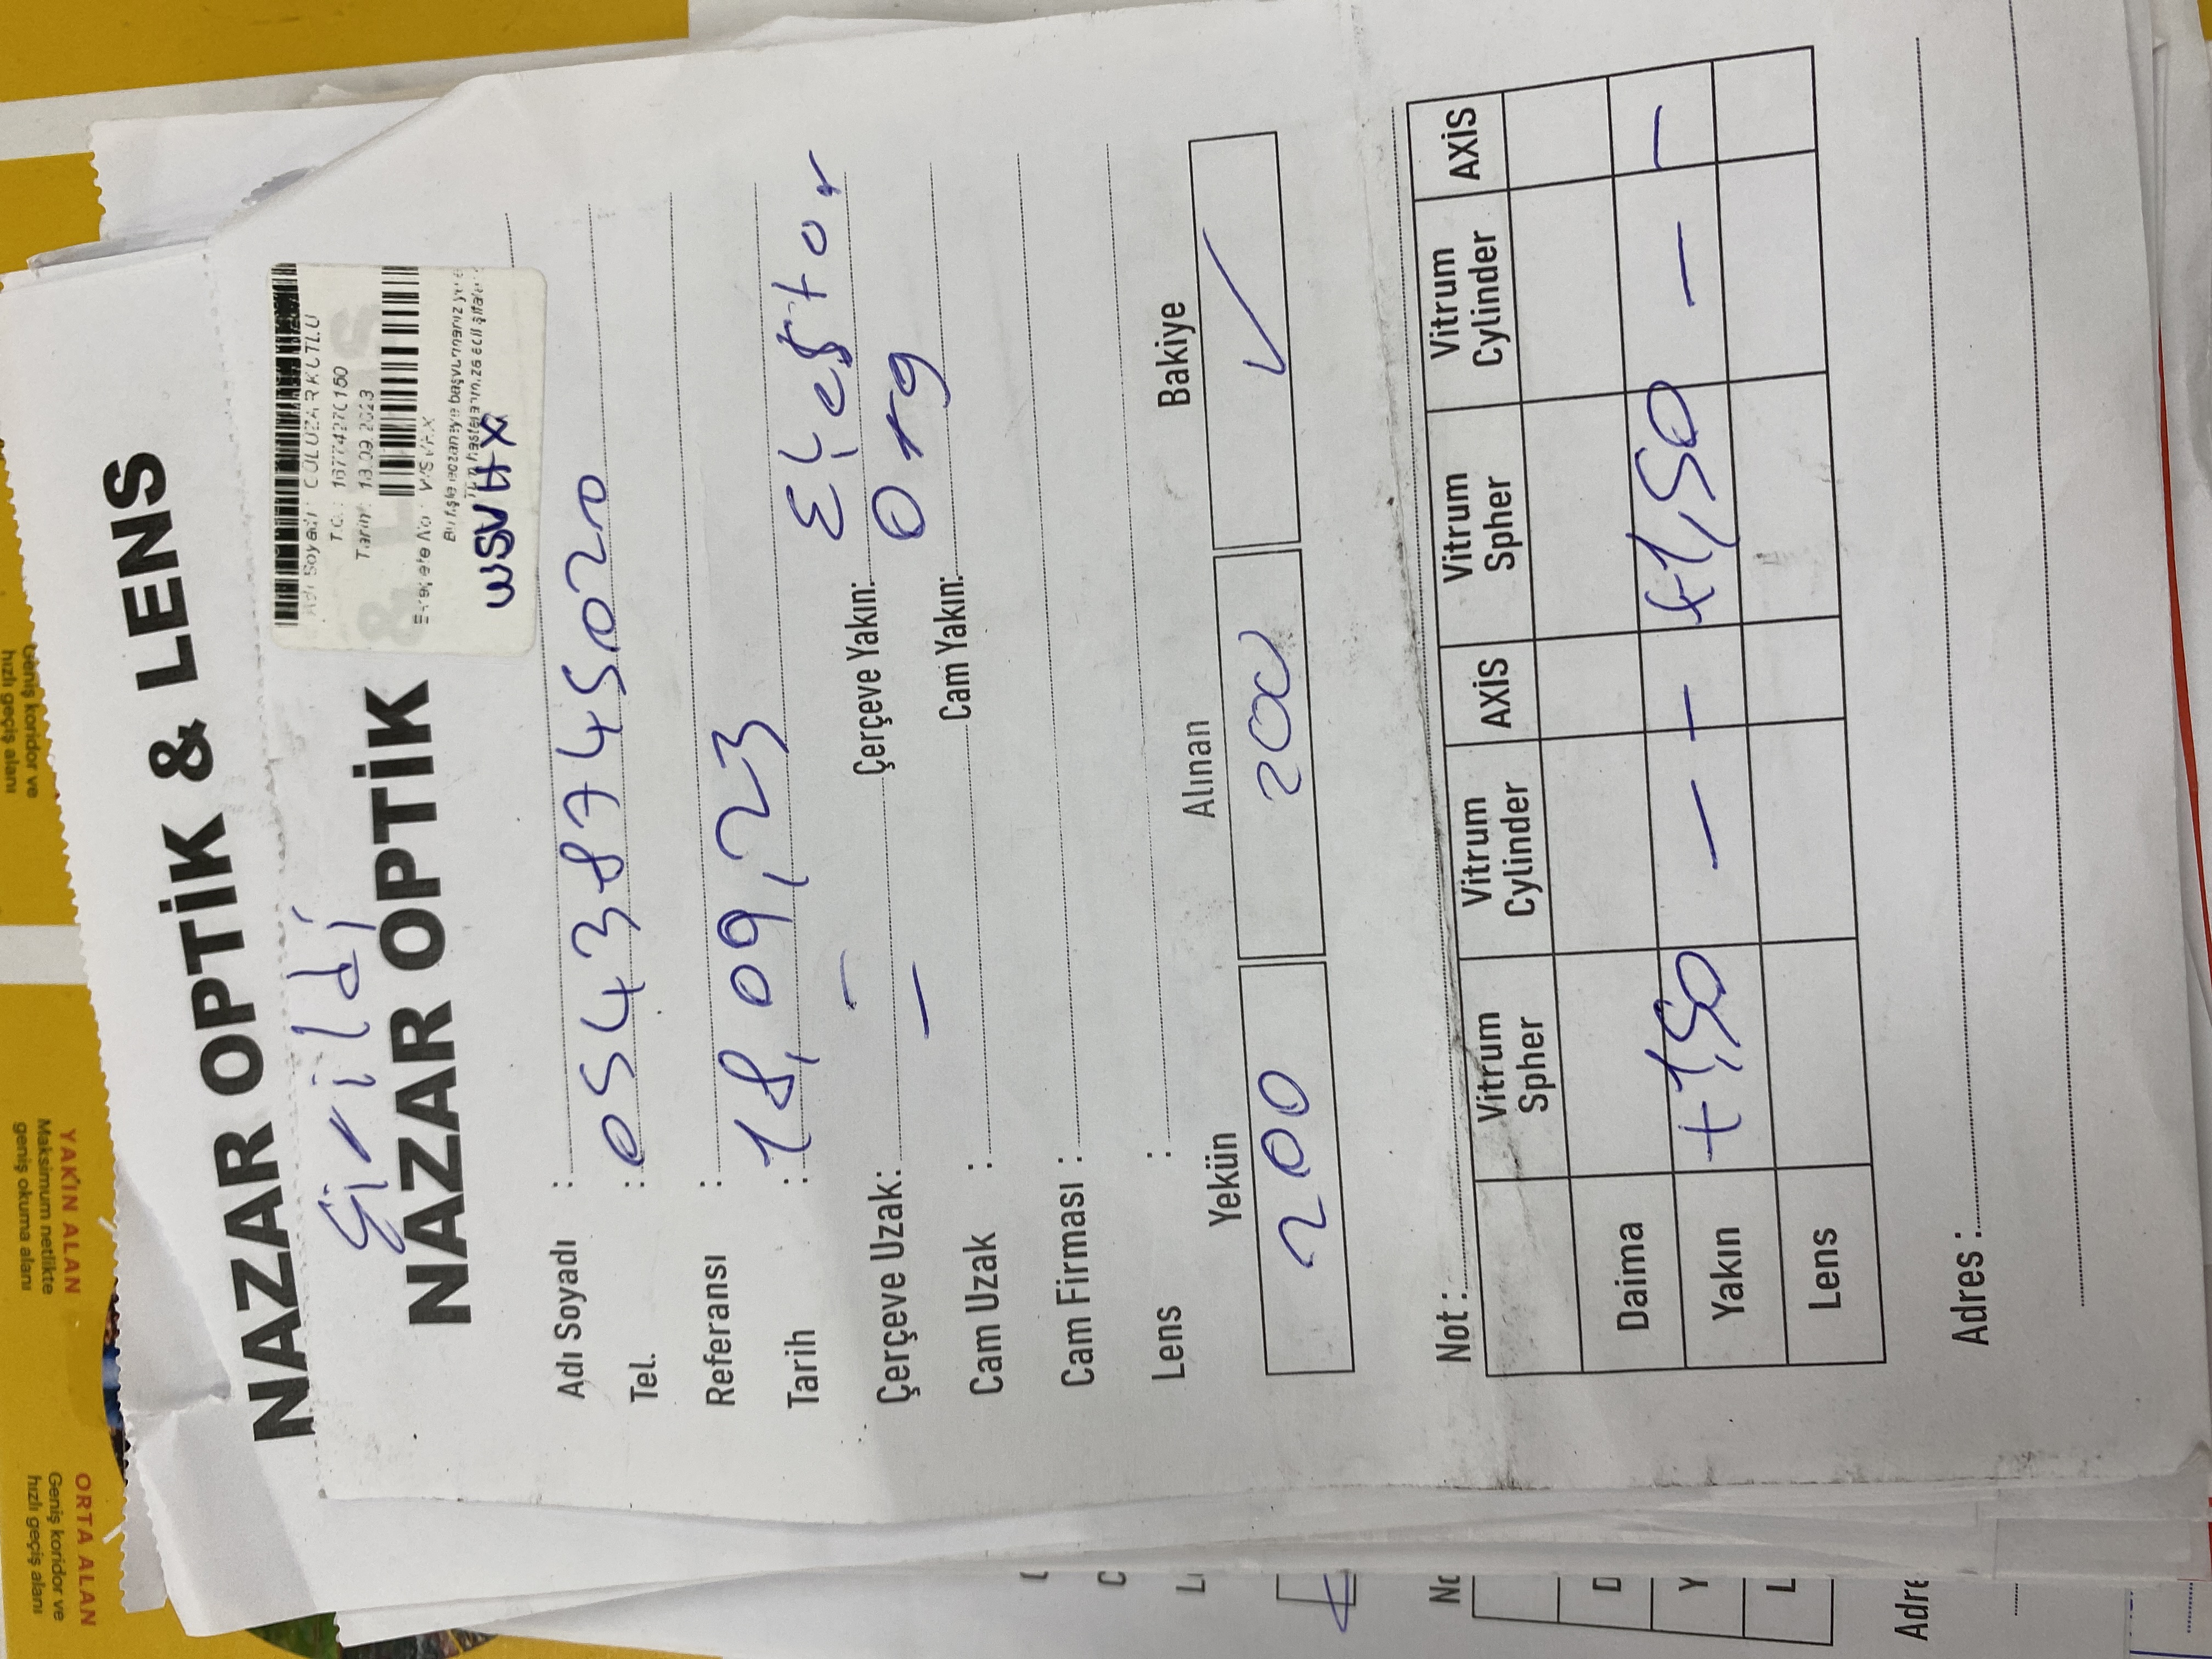 ORTA ALAN
Geniş koridor ve
hızlı geçiş alanı
YAKIN ALAN
Maksimum netlikte
geniş okuma alanı
Geniş koridor ve
hızlı geçiş alanı
NAZAR OPTİK & LENS
girildi
NAZAR OPTİK
Adı Soyadı : GÜLÜZAR KUTLU
T.C. : 16774270150
Tarih : 18.09.2023
E-reçete No : WSVHX
Bu fişle eczaneye başvurmanız
Tüm hastalarımıza acil şifalar
WSVHX
Adı Soyadı :
Tel. : 05438745020
Referansı :
Tarih : 18,09,23
Çerçeve Uzak: - Çerçeve Yakın:
Cam Uzak : - Cam Yakın: Org
Cam Firması :
Lens :
Yekün Alınan Bakiye
200 200 ✓
Not :
Vitrum Spher Vitrum Cylinder AXİS Vitrum Spher Vitrum Cylinder AXİS
Daima
Yakın +1,50 - - +1,50 - -
Lens
Adres :